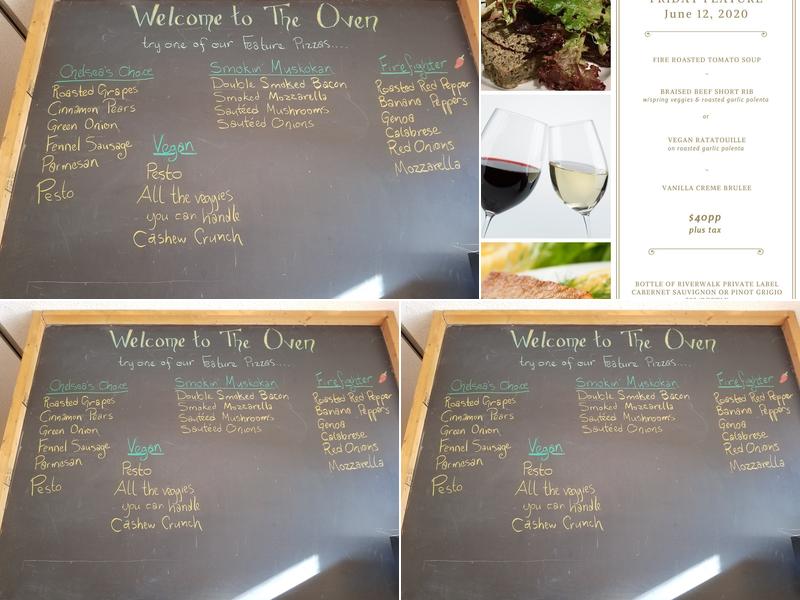 Welcome to The Oven
try one of our Feature Pizzas....
Chelsea's Choice
Roasted Grapes
Cinnamon Pears
Green Onion
Fennel Sausage
Parmesan
Pesto
Vegan
Pesto
All the veggies
you can handle
Cashew Crunch
Smokin' Muskokan
Double Smoked Bacon
Smoked Mozzarella
Sautéed Mushrooms
Sautéed Onions
Firefighter
Roasted Red Pepper
Banana Peppers
Genoa
Calabrese
Red Onions
Mozzarella
FRIDAY FEATURE
June 12, 2020
FIRE ROASTED TOMATO SOUP
~
BRAISED BEEF SHORT RIB
w/spring veggies & roasted garlic polenta
or
VEGAN RATATOUILLE
on roasted garlic polenta
~
VANILLA CREME BRULEE
$40pp
plus tax
BOTTLE OF RIVERWALK PRIVATE LABEL
CABERNET SAUVIGNON OR PINOT GRIGIO
Welcome to The Oven
try one of our Feature Pizzas....
Chelsea's Choice
Roasted Grapes
Cinnamon Pears
Green Onion
Fennel Sausage
Parmesan
Pesto
Vegan
Pesto
All the veggies
you can handle
Cashew Crunch
Smokin' Muskokan
Double Smoked Bacon
Smoked Mozzarella
Sautéed Mushrooms
Sautéed Onions
Firefighter
Roasted Red Pepper
Banana Peppers
Genoa
Calabrese
Red Onions
Mozzarella
Welcome to The Oven
try one of our Feature Pizzas....
Chelsea's Choice
Roasted Grapes
Cinnamon Pears
Green Onion
Fennel Sausage
Parmesan
Pesto
Vegan
Pesto
All the veggies
you can handle
Cashew Crunch
Smokin' Muskokan
Double Smoked Bacon
Smoked Mozzarella
Sautéed Mushrooms
Sautéed Onions
Firefighter
Roasted Red Pepper
Banana Peppers
Genoa
Calabrese
Red Onions
Mozzarella